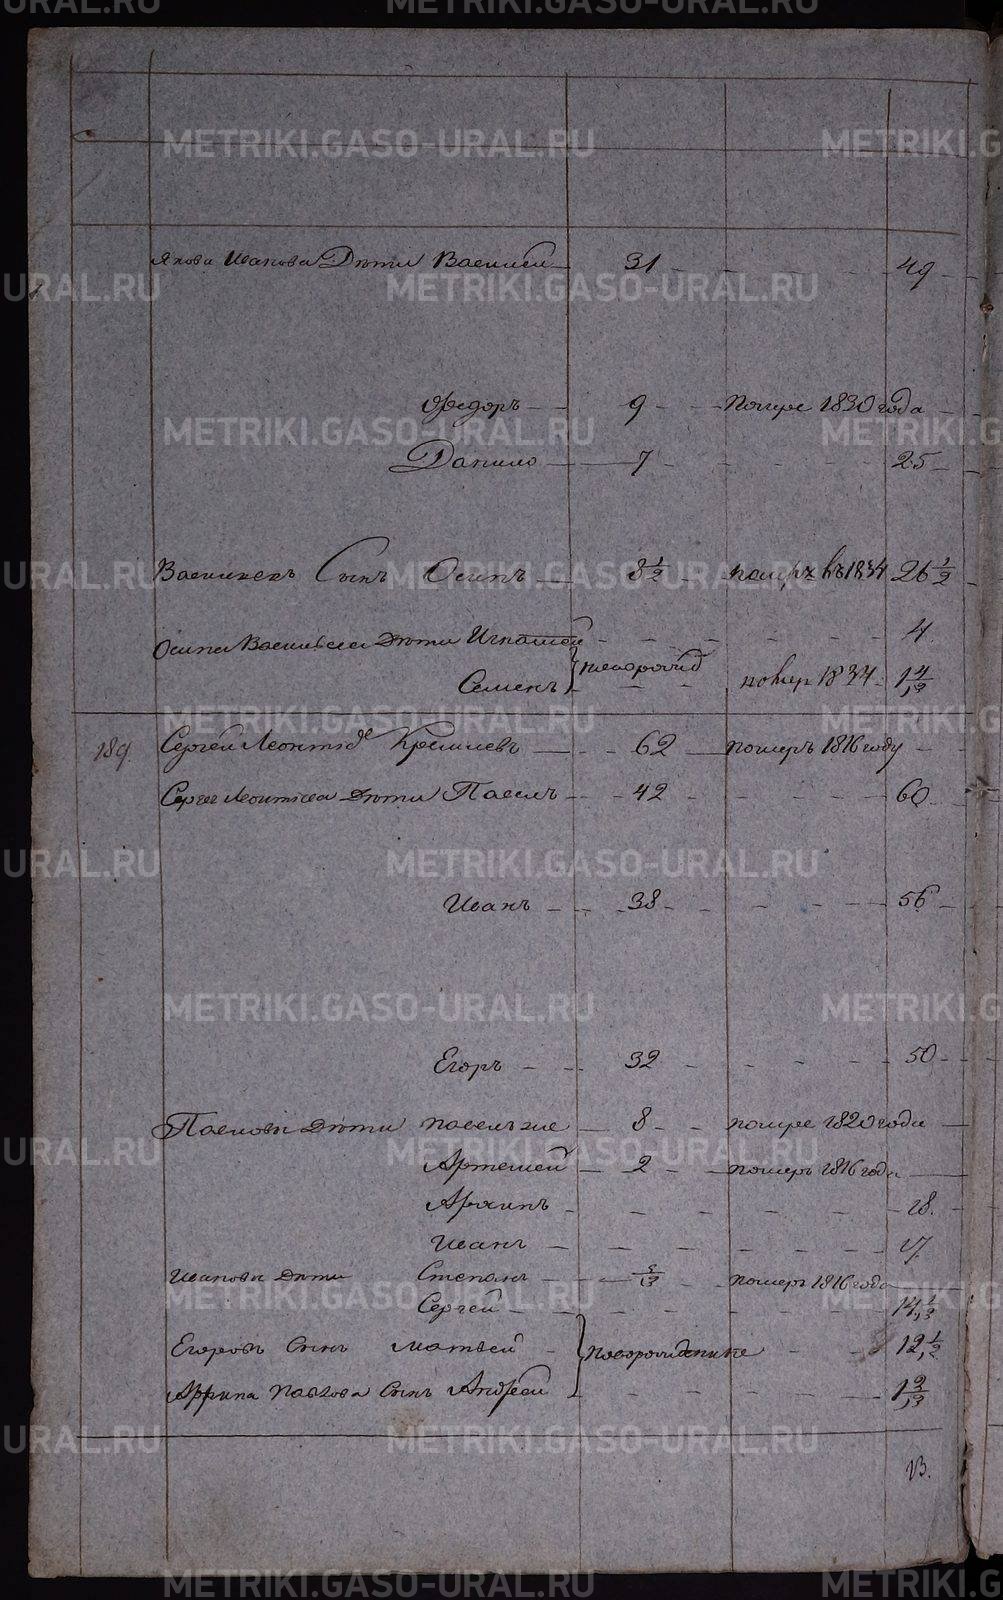 Якова Иванова Дѣти Василей 31 49
Ѳедоръ 9 помре 1830 года
Данило 7 25
Васильевъ Сынъ Осипъ 8 1/2 помръ въ 1834 26 1/2
Осипа Васильева Дѣти Игнатей 4
Семенъ новорожд помер 1834
189. Сергей Леонтьеѣ 62 померъ 1816 году
Сергея Леонтьева Дѣти Павелъ 42 60
Иванъ 38 56
Егоръ 32 50
Павловы Дѣти Павелъ же 8 помре 1820 года
Артемей 2 померъ 1816 года
Архипъ 18.
Иванъ 17.
Ивановы Дѣти Степанъ померъ 1816 года
Сергей
Егоровъ Сынъ Матвей новорожденные 12 1/2
Архипа Павлова Сынъ Андрей
13.
METRIKI.GASO-URAL.RU